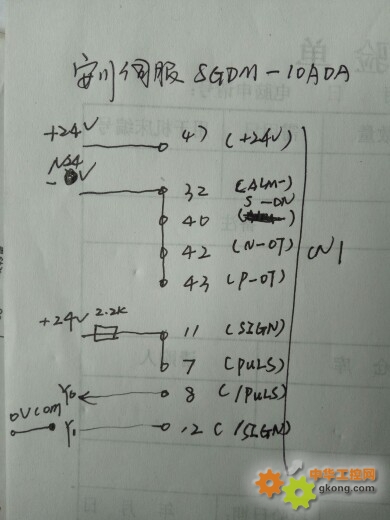 安川伺服 SGDM-10ADA
+24V 47 (+24V)
N24
- V 32 (ALM-)
S-ON
40
42 (N-OT)
43 (P-OT)
CN1
+24V 2.2K 11 (SIGN)
7 (PULS)
Y0 8 (/PULS)
0V COM Y1 12 (/SIGN)
中华工控网
gkong.com